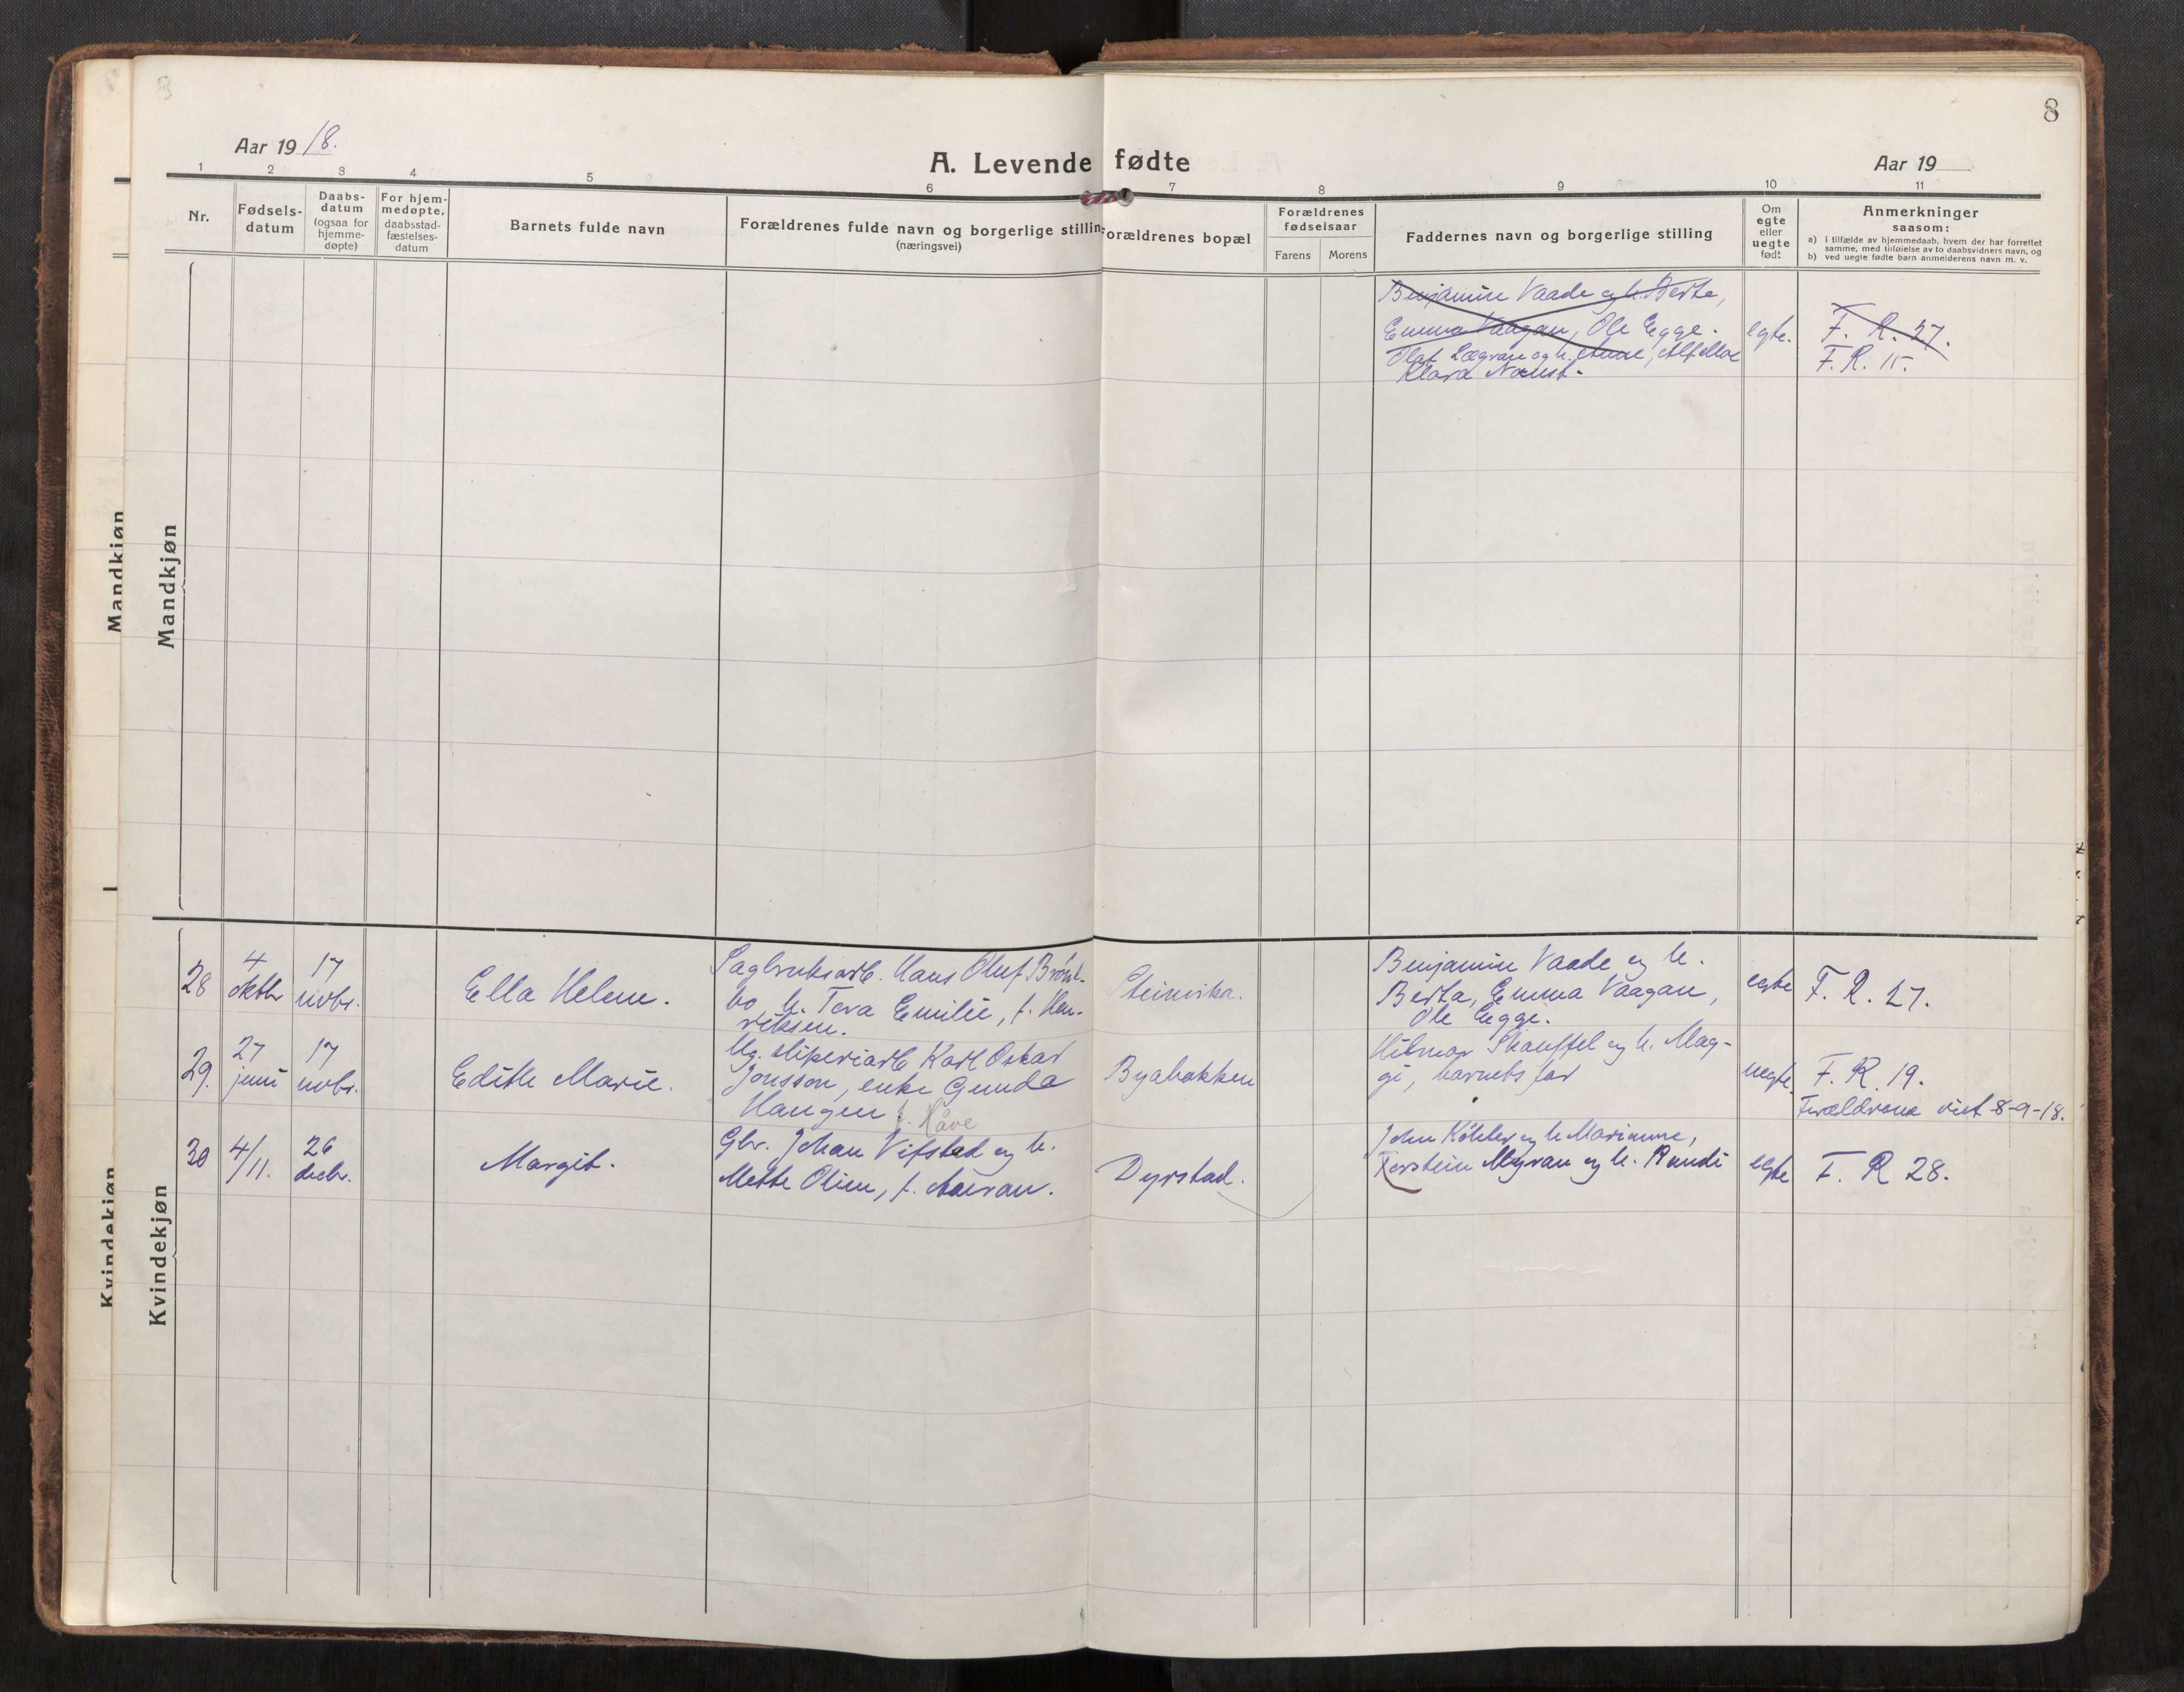 8
Aar 1918.
A. Levende fødte
Aar 19
1 2 3 4 5 6 7 8 9 10 11
Nr.
Fødsels-
datum
Daabs-
datum
(ogsaa for
hjemme-
døpte)
For hjem-
medøpte,
daabsstad-
fæstelses-
datum
Barnets fulde navn
Forældrenes fulde navn og borgerlige stilling
(næringsvei)
Forældrenes bopæl
Forældrenes
fødselsaar
Farens
Morens
Faddernes navn og borgerlige stilling
Om
egte
eller
uegte
født
Anmerkninger
saasom:
a) i tilfælde av hjemmedaab, hvem der har forrettet
samme, med tilføielse av to daabsvidners navn, og
b) ved uegte fødte barn anmelderens navn m. v.
Mandkjøn
Mandkjøn
Benjamin Vaade og h. Berta,
Emma Vaagan, Ole Egge.
Olaf Lægran og h. Anne, Alf Moe
Klara Naust.
egte.
F. R. 27.
F. R. 15.
Kvindekjøn
Kvindekjøn
28
4
oktbr
17
novbr.
Ella Helene.
Sagbruksarb. Hans Oluf Brøndbo,
h. Tora Emilie, f. Hen-
riksen.
Steinvika.
Benjamin Vaade og h.
Berta, Emma Vaagan,
Ole Egge.
egte
F. R. 27.
29.
27
juni
17
novbr.
Edith Marie.
Ug. sliperiarb Karl Oskar
Jonsson, enke Gunda
Haugen f. Håve
Byabakken
Hilmar Skauffel og h. Mag-
gi, barnets far
uegte
F. R. 19.
Forældrene viet 8-9-18.
30
4/11.
26
decbr.
Margit.
Gbr. Johan Vifstad og h.
Mette Oline, f. Aavran.
Dyrstad.
John Køhler og h Marianne,
Torstein Myran og h. Randi
egte
F. R 28.